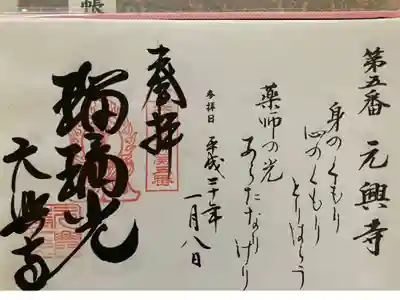 第五番 元興寺
身のくもり
心のくもり
とりはらう
薬師の光
あらたなりけり
参拝日 平成二十年
一月八日
奉拝
瑠璃光
元興寺
帳